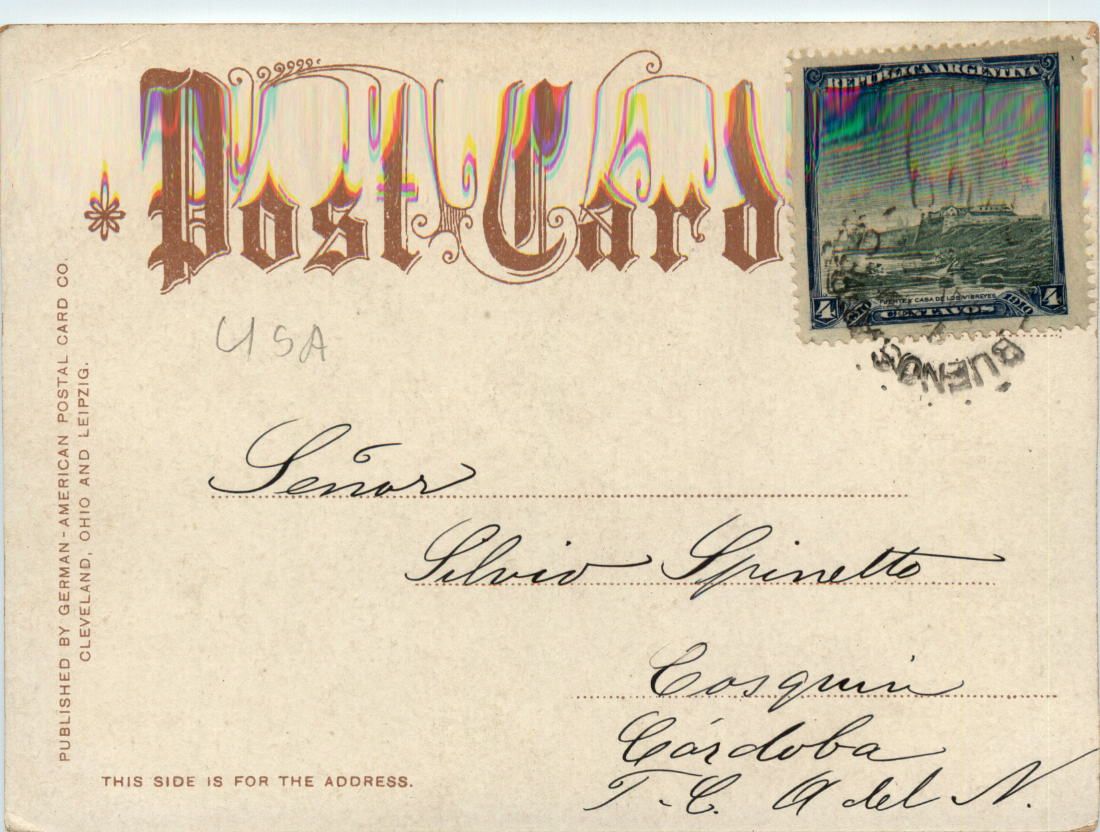 Post Card
REPUBLICA ARGENTINA
FUERTE Y CASA DE LOS VIRREYES
4 1810 CENTAVOS 1910 4
BUENOS
USA
Señor
Silvio Spinetto
Cosquin
Córdoba
F. C. A del N.
THIS SIDE IS FOR THE ADDRESS.
PUBLISHED BY GERMAN-AMERICAN POSTAL CARD CO.
CLEVELAND, OHIO AND LEIPZIG.